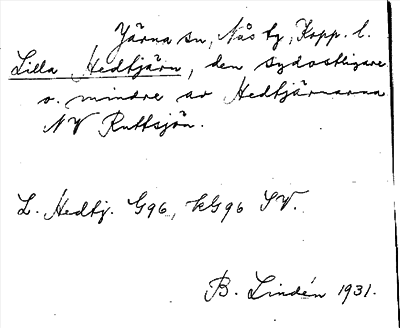 Järna sn, Nås by, Kopp. l.
Lilla Hedtjärn, den sydostligare
o. mindre av Hedtjärnarna
NV Ruttsjön.
L. Hedtj. G96, kG96 SV.
B. Lindén 1931.